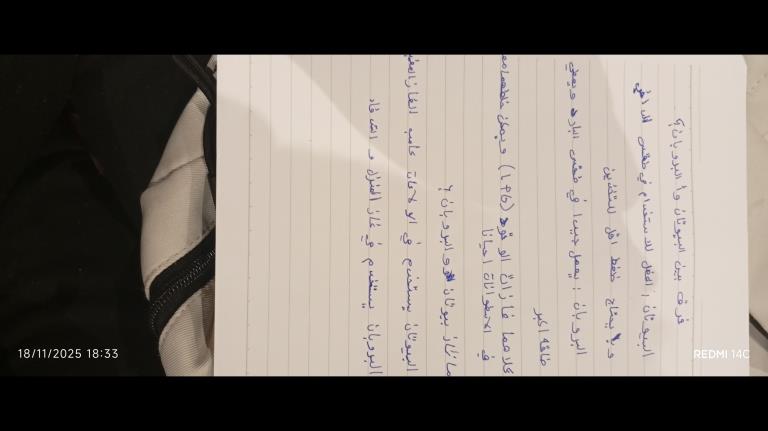 فرق بين البيوتان و البروبان؟
البيوتان: افضل للاستخدام في طقس الدافئ
و يحتاج ضغط اقل للتخزين
البروبان: يعمل جيدا في طقس البارد و يعطي
طاقة اكبر
كلاهما غازات الوقود (LPG) و يمكن خلطهما
في الاسطوانات احيانا
ماغاز بيوتان والبروبان؟
البيوتان يستخدم في الولاعات علب الغاز
البروبان يستخدم في غاز المنزل و
18/11/2025 18:33
REDMI 14C